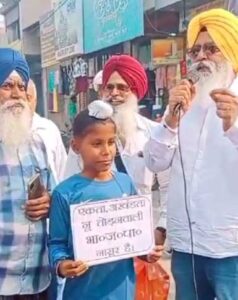 एकता,अखंडता
नू तोड़नवाली
भा०ज०पा०
नासूर है।